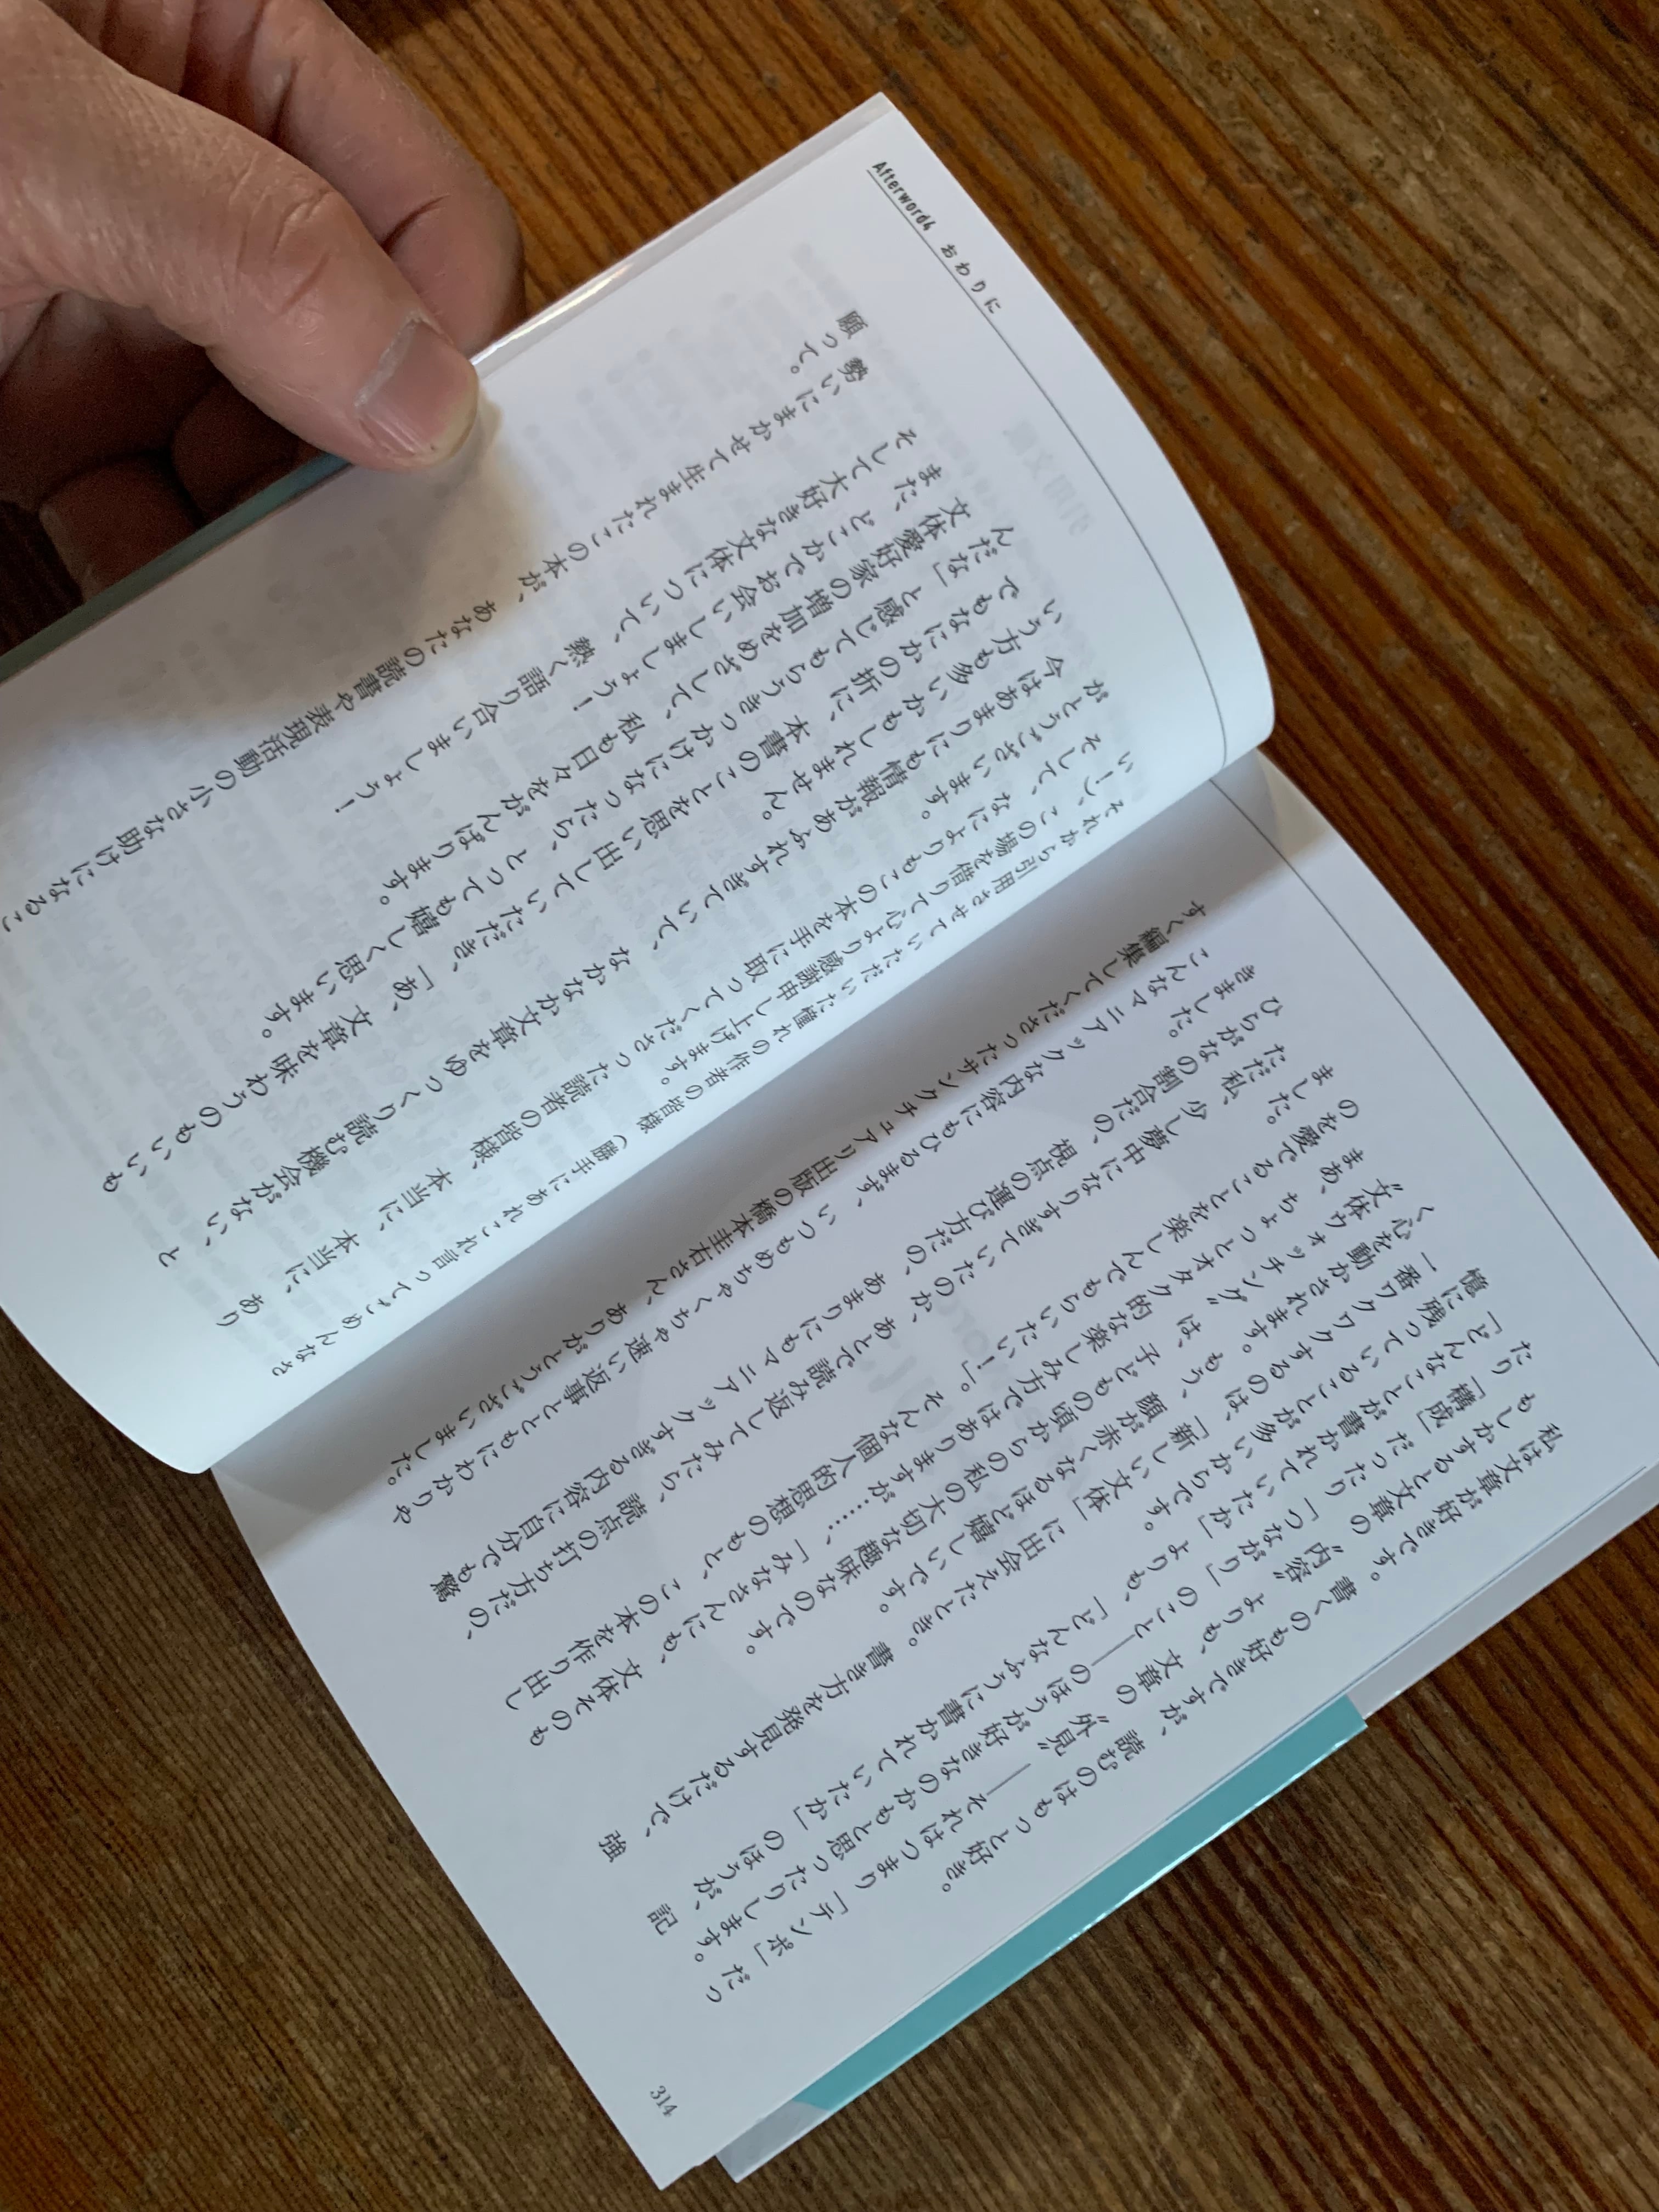 私は文章が好きです。書くのも好きですが、読むのはもっと好き。
もしかすると文章の〝内容〟よりも、文章の〝外見〟——それはつまり「テンポ」だっ
たり「構成」だったり「つながり」のこと——のほうが好きなのかもと思ったりします。
「どんなことが書かれていたか」よりも、「どんなふうに書かれていたか」のほうが、記
憶に残っていることが多いからです。
一番ワクワクするのは、「新しい文体」に出会えたとき。書き方を発見するだけで、強
く心を動かされます。もう、顔が赤くなるほど嬉しいです。
〝文体ウォッチング〟は、子どもの頃からの私の大切な趣味なのです。
まあ、ちょっとオタク的な楽しみ方ではありますが……、「みなさんにも、文体そのも
のを愛でることを楽しんでもらいたい!」。そんな個人的思想のもと、この本を作り出し
ました。
ただ私、少し夢中になりすぎていたのか、あとで読み返してみたら、読点の打ち方だの、
ひらがなの割合だの、視点の運び方だの、あまりにもマニアックすぎる内容に自分でも驚
きました。
こんなマニアックな内容にもひるまず、いつもめちゃくちゃ速い返事とともにわかりや
すく編集してくださったサンクチュアリ出版の橋本圭右さん、ありがとうございました。
314
Afterword4 おわりに
それから引用させていただいた憧れの作者の皆様(勝手にあれこれ言ってごめんなさ
い!)、この場を借りて心より感謝申し上げます。
そして、なによりもこの本を手に取ってくださった読者の皆様、本当に、本当に、あり
がとうございます。
今はあまりにも情報があふれすぎていて、なかなか文章をゆっくり読む機会がない、と
いう方も多いかもしれません。
でもなにかの折に、本書のことを思い出していただき、「あ、文章を味わうのもいいも
んだな」と感じてもらうきっかけになったら、とっても嬉しく思います。
文体愛好家の増加をめざして、私も日々をがんばります。
また、どこかでお会いしましょう!
そして大好きな文体について、熱く語り合いましょう!
勢いにまかせて生まれたこの本が、あなたの読書や表現活動の小さな助けになるこ
願って。